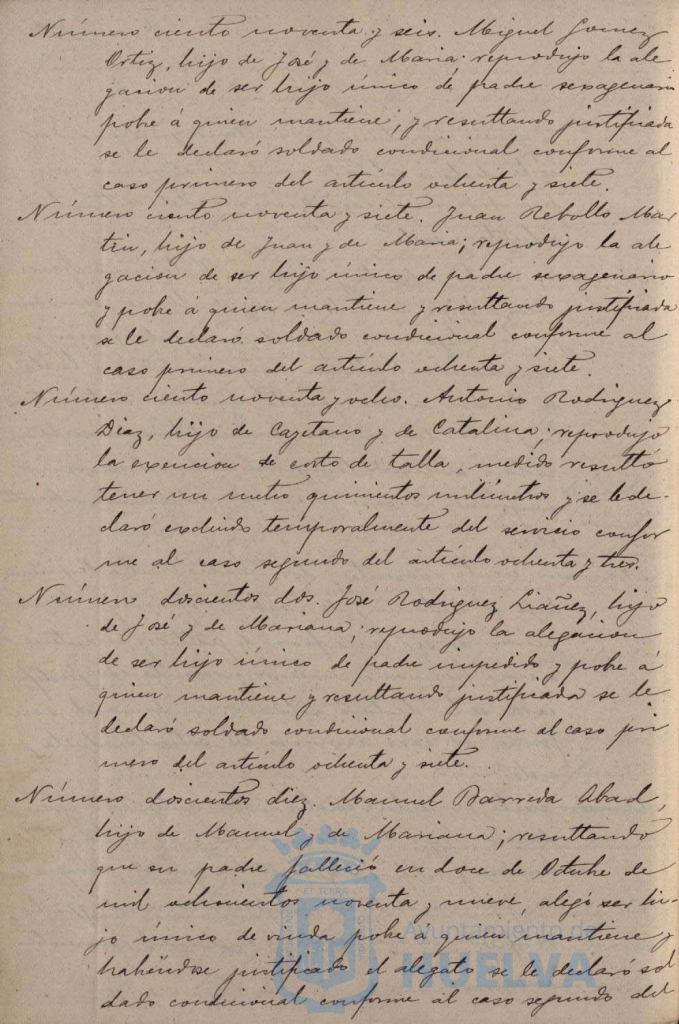 Número ciento noventa y seis. Miguel Gomez
Ortiz, hijo de José y de Maria; reprodujo la ale
gacion de ser hijo único de padre sexagenario
pobre á quien mantiene, y resultando justificada
se le declaró soldado condicional conforme al
caso primero del artículo ochenta y siete.
Número ciento noventa y siete. Juan Rebollo Mar
tin, hijo de Juan y de Maria; reprodujo la ale
gacion de ser hijo único de padre sexagenario
y pobre á quien mantiene y resultando justificada
se le declaró soldado condicional conforme al
caso primero del artículo ochenta y siete.
Número ciento noventa y ocho. Antonio Rodriguez
Diaz, hijo de Cayetano y de Catalina; reprodujo
la exencion de corto de talla, medido resultó
tener un metro quinientos milímetros y se le de-
claró excluido temporalmente del servicio confor
me al caso segundo del artículo ochenta y tres.
Número doscientos dos. José Rodriguez Liáñez, hijo
de José y de Mariana; reprodujo la alegacion
de ser hijo único de padre impedido y pobre á
quien mantiene y resultando justificada se le
declaró soldado condicional conforme al caso pri
mero del artículo ochenta y siete.
Número doscientos diez. Manuel Barreda Abad,
hijo de Manuel y de Mariana; resultando
que su padre falleció en doce de Octubre de
mil ochocientos noventa y nueve, alegó ser hi-
jo único de viuda pobre á quien mantiene y
habiéndose justificado el alegato se le declaró sol
dado condicional conforme al caso segundo del
Ayuntamiento de
HUELVA